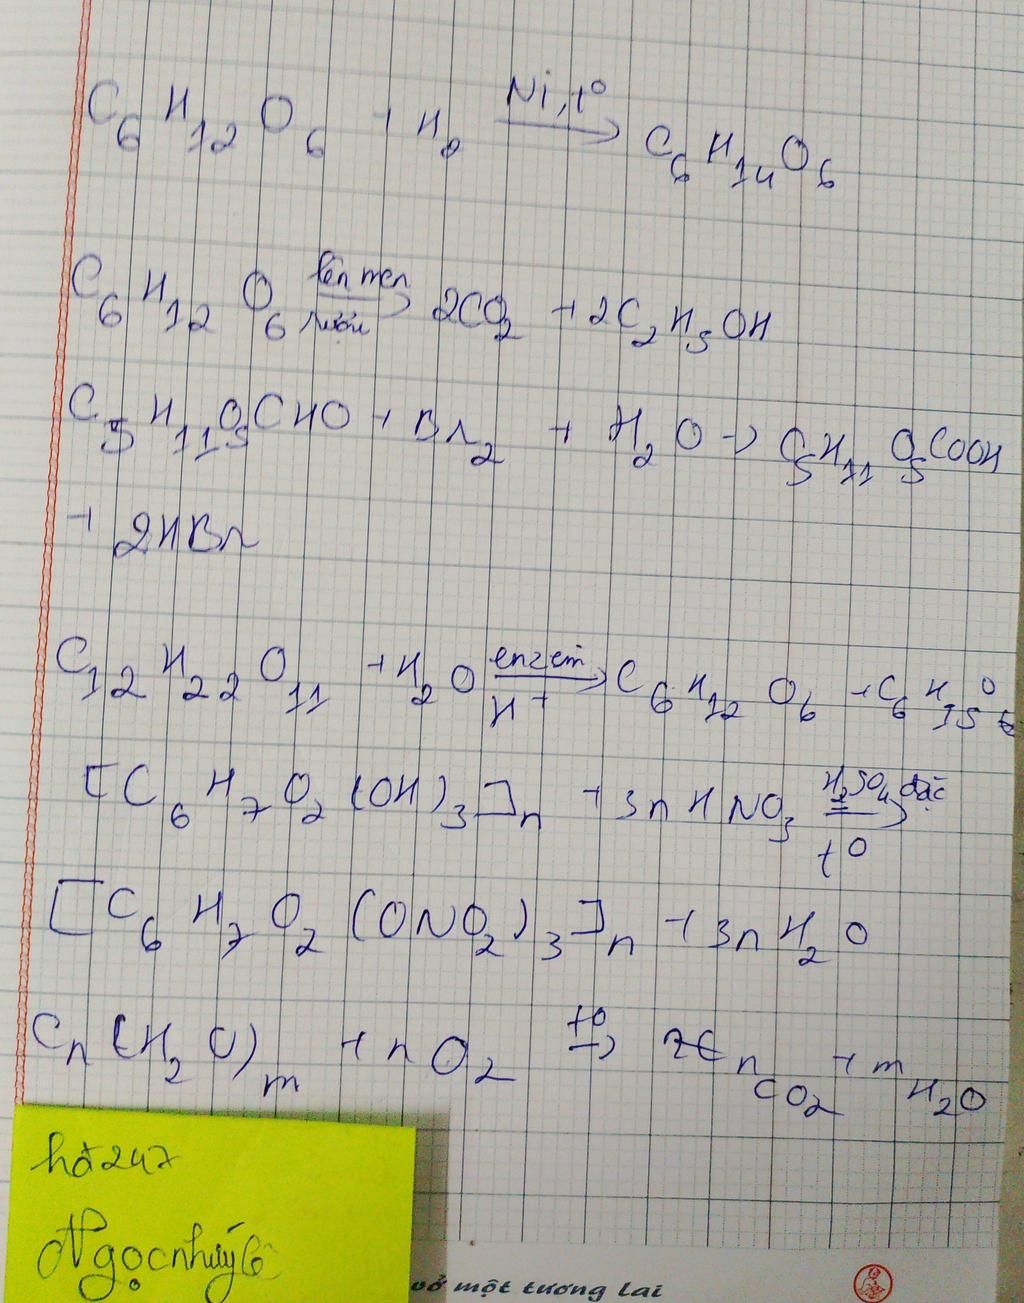 C6H12O6 + H2 Ni, t° → C6H14O6
C6H12O6 lên men rượu → 2CO2 + 2C2H5OH
C5H11O5CHO + Br2 + H2O → C5H11O5COOH
+ 2HBr
C12H22O11 + H2O enzem H+ → C6H12O6 + C6H15O6
[C6H7O2(OH)3]n + 3nHNO3 H2SO4 đặc t° →
[C6H7O2(ONO2)3]n + 3nH2O
Cn(H2O)m + nO2 t° → nCO2 + mH2O
hđ247
Ngọcnhưý
vở một tương lai